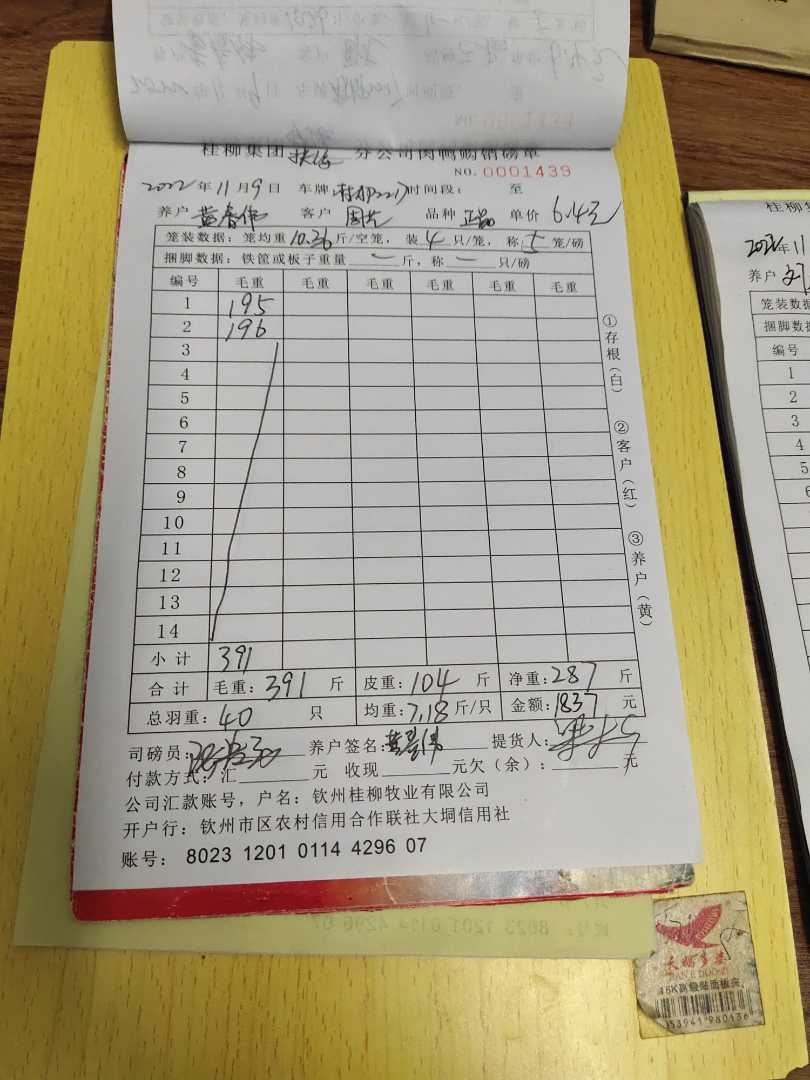 桂柳集团 分公司肉鸭购销磅单
NO. 0001439
2022年11月9日 车牌 时间段： 至
养户 黄春伟 客户 周 品种 正品 单价 6.4元
笼装数据：笼均重10.36斤/空笼，装4只/笼，称5笼/磅
捆脚数据：铁筐或板子重量一斤，称一只/磅
编号 毛重 毛重 毛重 毛重 毛重 毛重
1 195
2 196
3
4
5
6
7
8
9
10
11
12
13
14
小计 391
合计 毛重：391斤 皮重：104斤 净重：287斤
总羽重：40只 均重：7.18斤/只 金额：1837元
司磅员： 养户签名：黄春伟 提货人：
付款方式：汇 元 收现 元欠（余）： 元
公司汇款账号，户名：钦州桂柳牧业有限公司
开户行：钦州市区农村信用合作联社大垌信用社
账号： 8023 1201 0114 4296 07
①存根（白）
②客户（红）
③养户（黄）
桂柳集
2022年11
养户
笼装数据
捆脚数据
编号
1
2
3
4
5
6
16K高级贴面板夹